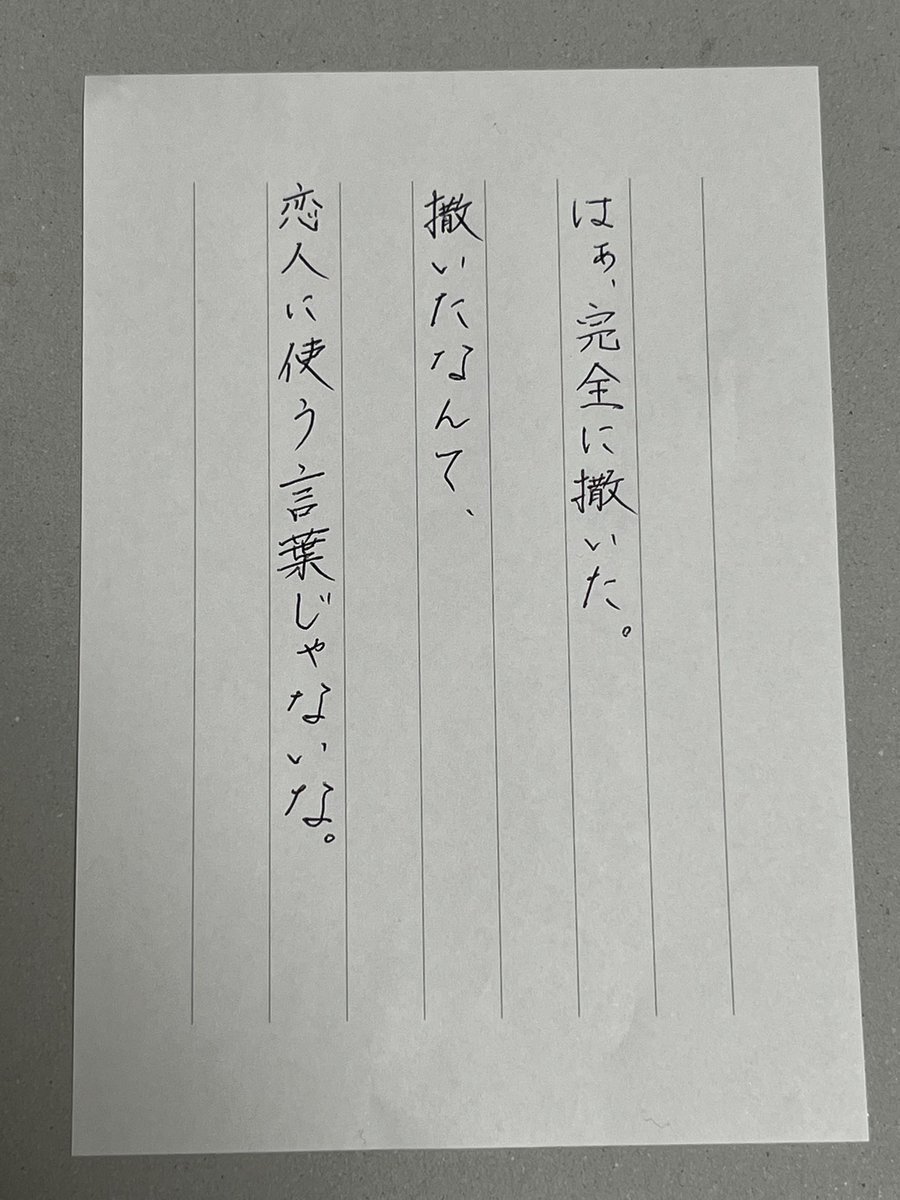 はぁ、完全に撒いた。
撒いたなんて、
恋人に使う言葉じゃないな。